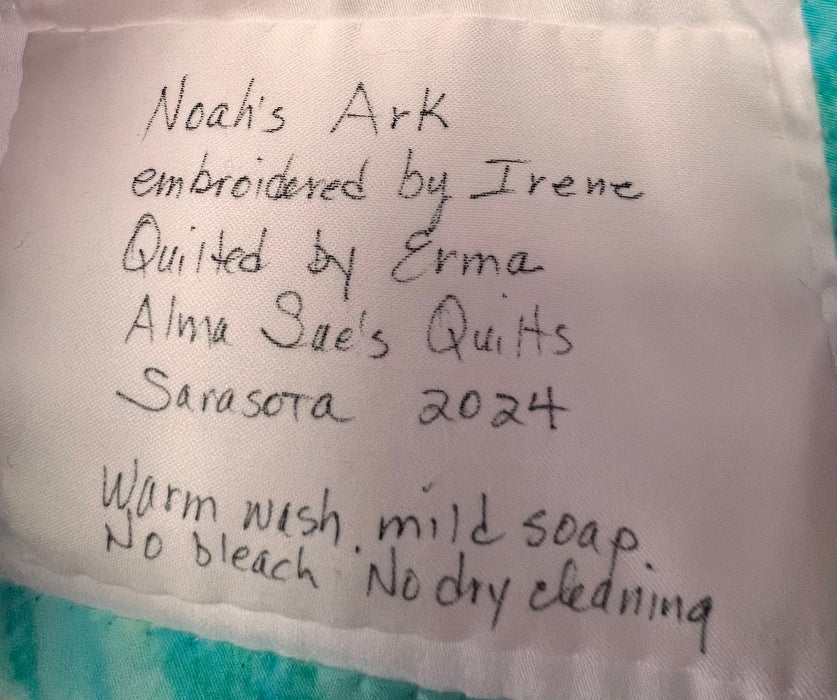 Noah's Ark
embroidered by Irene
Quilted by Erma
Alma Sue's Quilts
Sarasota 2024
Warm wash. mild soap.
No bleach. No dry cleaning